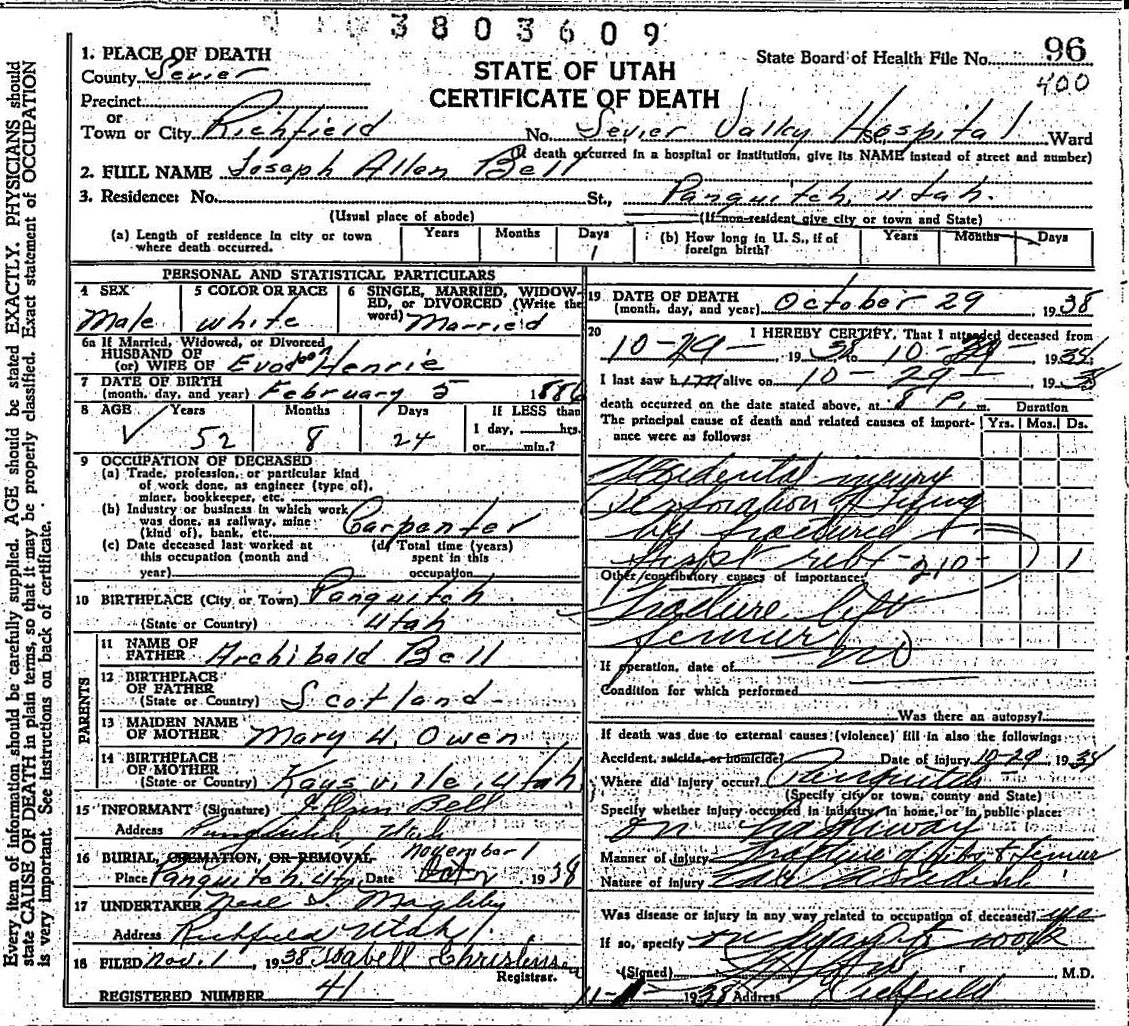 3803609
1. PLACE OF DEATH
County Sevier
State Board of Health File No. 96
400
STATE OF UTAH
CERTIFICATE OF DEATH
Precinct
or
Town or City Richfield No. Sevier Valley Hospital St., Ward
(If death occurred in a hospital or institution, give its NAME instead of street and number)
2. FULL NAME Joseph Allen Bell
3. Residence: No. St., Panguitch, Utah.
(Usual place of abode) (If non-resident give city or town and State)
(a) Length of residence in city or town where death occurred. Years Months Days 1
(b) How long in U. S., if of foreign birth? Years Months Days
PERSONAL AND STATISTICAL PARTICULARS
4 SEX Male
5 COLOR OR RACE white
6 SINGLE, MARRIED, WIDOWED, or DIVORCED (Write the word) Married
6a If Married, Widowed, or Divorced
HUSBAND OF
(or) WIFE OF Henrie
7 DATE OF BIRTH
(month, day, and year) February 5 1886
8 AGE Years 52 Months 8 Days 24 If LESS than 1 day, hrs. or min.?
9 OCCUPATION OF DECEASED
(a) Trade, profession, or particular kind
of work done, as engineer (type of),
miner, bookkeeper, etc.
(b) Industry or business in which work
was done, as railway, mine
(kind of), bank, etc. Carpenter
(c) Date deceased last worked at this occupation (month and year)
(d) Total time (years) spent in this occupation
10 BIRTHPLACE (City or Town) Panguitch
(State or Country) Utah
PARENTS
11 NAME OF
FATHER Archibald Bell
12 BIRTHPLACE
OF FATHER
(State or Country) Scotland
13 MAIDEN NAME
OF MOTHER Mary H. Owen
14 BIRTHPLACE
OF MOTHER
(State or Country) Kaysville Utah
15 INFORMANT (Signature) Bell
Address Utah
16 BURIAL, CREMATION, OR REMOVAL November 1
Place Panguitch, Ut, Date Oct 1938
17 UNDERTAKER Magleby
Address Richfield Utah
18 FILED Nov. 1, 1938 Isabell Christensen
Registrar.
REGISTERED NUMBER 41
19 DATE OF DEATH
(month, day, and year) October 29 1938
20 I HEREBY CERTIFY, That I attended deceased from
10-29- 1938 to 10-29- 1938
I last saw him alive on 10-29- 1938
death occurred on the date stated above, at 8 P. m. Duration
The principal cause of death and related causes of importance were as follows: Yrs. Mos. Ds.
Accidental injury
Perforation of lung
by fractured
first rib -210- 1
Other contributory causes of importance:
Fracture left
femur
If operation, date of no
Condition for which performed
Was there an autopsy?
If death was due to external causes (violence) fill in also the following:
Accident, suicide, or homicide? Date of injury 10-29 1938
Where did injury occur? Panguitch
(Specify city or town, county and State)
Specify whether injury occurred in industry, in home, or in public place:
on highway
Manner of injury Fracture of ribs & femur
Nature of injury accident
Was disease or injury in any way related to occupation of deceased? yes
If so, specify on way to work
(Signed) M.D.
1938 Address Richfield
Every item of information should be carefully supplied. AGE should be stated EXACTLY. PHYSICIANS should
state CAUSE OF DEATH in plain terms, so that it may be properly classified. Exact statement of OCCUPATION
is very important. See instructions on back of certificate.